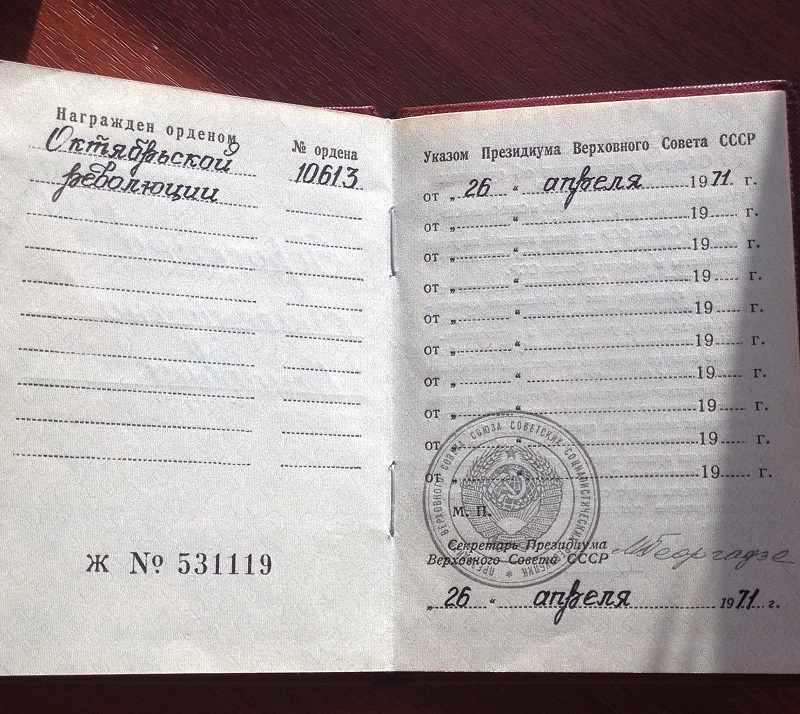 Награжден орденом
Октябрьской
революции
№ ордена
10613
Ж № 531119
Указом Президиума Верховного Совета СССР
от „ 26 “ апреля 1971 г.
от „ “ 19 г.
от „ “ 19 г.
от „ “ 19 г.
от „ “ 19 г.
от „ “ 19 г.
от „ “ 19 г.
от „ “ 19 г.
от „ “ 19 г.
от „ “ 19 г.
ВЕРХОВНОГО СОВЕТА СОЮЗА СОВЕТСКИХ СОЦИАЛИСТИЧЕСКИХ
М. П.
Секретарь Президиума
Верховного Совета СССР
МГеоргадзе
„ 26 “ апреля 1971 г.